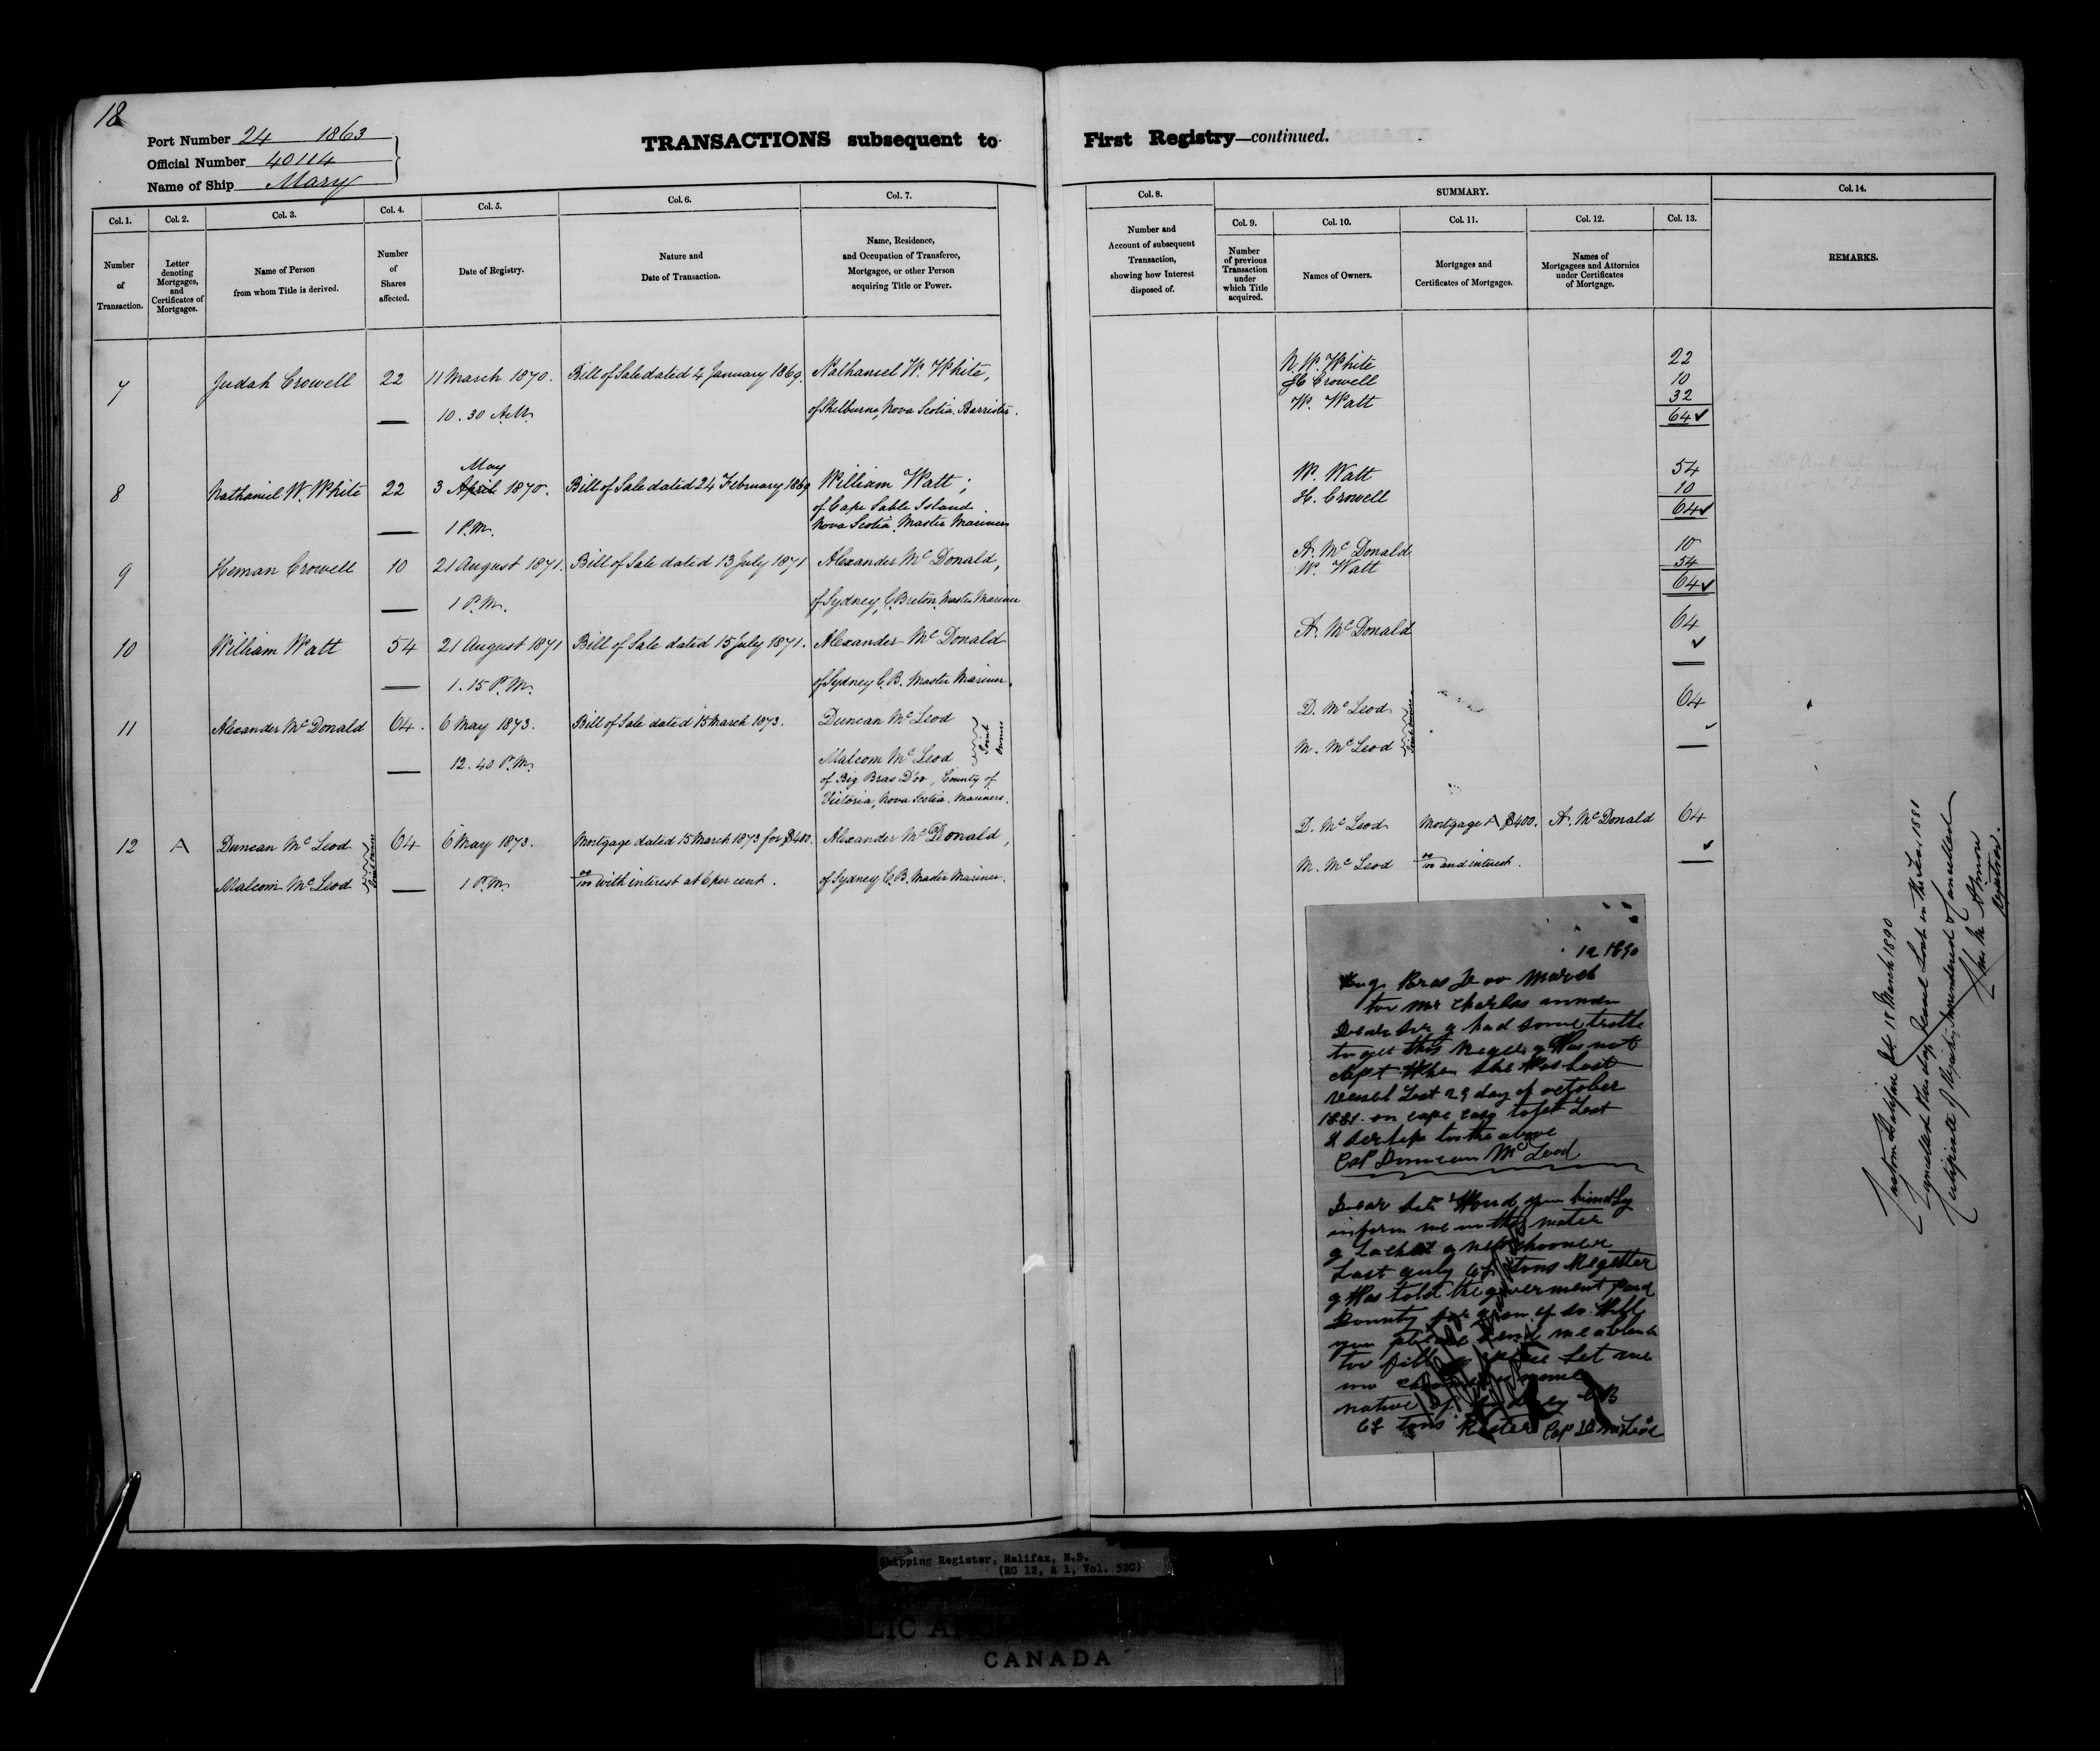 18
Port Number 24 1863
Official Number 40114
Name of Ship Mary
TRANSACTIONS subsequent to First Registry—continued.
Col. 1. Col. 2. Col. 3. Col. 4. Col. 5. Col. 6. Col. 7. Col. 8. SUMMARY. Col. 14.
Col. 9. Col. 10. Col. 11. Col. 12. Col. 13.
Number of Transaction.
Letter denoting Mortgages, and Certificates of Mortgages.
Name of Person from whom Title is derived.
Number of Shares affected.
Date of Registry.
Nature and Date of Transaction.
Name, Residence, and Occupation of Transferee, Mortgagee, or other Person acquiring Title or Power.
Number and Account of subsequent Transaction, showing how Interest disposed of.
Number of previous Transaction under which Title acquired.
Names of Owners.
Mortgages and Certificates of Mortgages.
Names of Mortgagees and Attornies under Certificates of Mortgage.
REMARKS.
7 Judah Crowell 22 11 March 1870. Bill of Sale dated 4 January 1869. Nathaniel W. White,
— 10.30 A.M. of Shelburne, Nova Scotia. Barrister.
N. W. White 22
H Crowell 10
W. Watt 32
64 ✓
May
8 Nathaniel W. White 22 3 April 1870. Bill of Sale dated 24 February 1869 William Watt;
of Cape Sable Island.
— 1 P.M. Nova Scotia. Master Mariner
W. Watt 54
H. Crowell 10
64 ✓
9 Heman Crowell 10 21 August 1871. Bill of Sale dated 13 July 1871 Alexander McDonald,
— 1 P.M. of Sydney, C. Breton. Master Mariner
A. McDonald 10
W. Watt 54
64 ✓
10 William Watt 54 21 August 1871 Bill of Sale dated 15 July 1871. Alexander McDonald
— 1.15 P.M. of Sydney C.B. Master Mariner.
A. McDonald 64
✓
11 Alexander McDonald 64. 6 May 1873. Bill of Sale dated 15 March 1873. Duncan McLeod
— 12.40 P.M. Malcom McLeod
Joint Owners
of Big Bras D'or, County of
Victoria, Nova Scotia. Mariners.
D. McLeod 64
M. McLeod ✓
Joint Owners
12 A Duncan McLeod 64 6 May 1873. Mortgage dated 15 March 1873 for $400. Alexander McDonald,
Malcom McLeod — 1 P.M. 00/100 with interest at 6 per cent. of Sydney C.B. Master Mariner.
Joint Owners
D. McLeod Mortgage A $400. A. McDonald 64
M. McLeod 00/100 and interest. ✓
12 1890
Bras Do or March
too Mr Charles
Dear Sir g had some
to get this g Was not
Capt When she Was Lost
vessel Lost 29 day of october
1881. on cape
too the above
Cap Duncan McLeod
Dear Sir Woud you kindly
inform me in this mater
Last tons Regetter
g Was told the goverment
Bounty if so Will
you please send me a
too fill Let me
native of C B
tons Cap D McLeod
Custom Halifax 18 March 1890
Cancelled this day Vessel Lost in the Fos, 1881
Certificate of Registry Surrendered & Cancelled
Almon
Registrar.
Shipping Register, Halifax, N.S.
(RG 12, A 1, Vol. 520)
CANADA